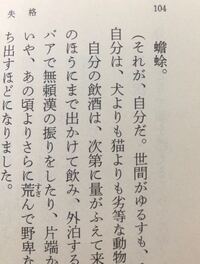 104
失格
蟾蜍。
(それが、自分だ。世間がゆるすも、
自分は、犬よりも猫よりも劣等な動物
自分の飲酒は、次第に量がふえて来
のほうにまで出かけて飲み、外泊する
バアで無頼漢の振りをしたり、片端か
いや、あの頃よりさらに荒んで野卑な
ち出すほどになりました。
すさ